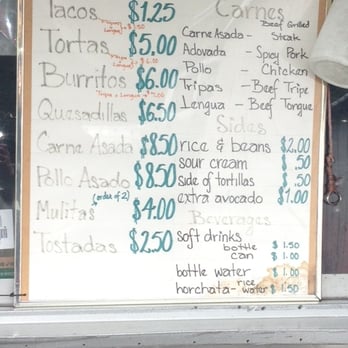 Tacos $1.25
Tortas $5.00
Burritos $6.00
Quesadillas $6.50
Carne Asada $8.50
Pollo Asado $8.50
(order of 2)
Mulitas $4.00
Tostadas $2.50
Carnes
Beef Grilled
Carne Asada - Steak
Adovada - Spicy Pork
Pollo - Chicken
Tripas - Beef Tripe
Lengua - Beef Tongue
Sides
rice & beans $2.00
sour cream $.50
side of tortillas $.50
extra avocado $1.00
Beverages
soft drinks
bottle $1.50
can $1.00
bottle water $1.00
horchata - rice water $1.50